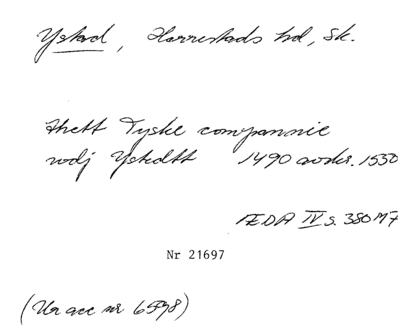 Ystad, Herrestads hd, Sk.
thett Tyske compannie
wdj Ystedtt 1490 avskr. 1550
ÆDA IV s. 380 M7
Nr 21697
(Ur acc nr 6598)